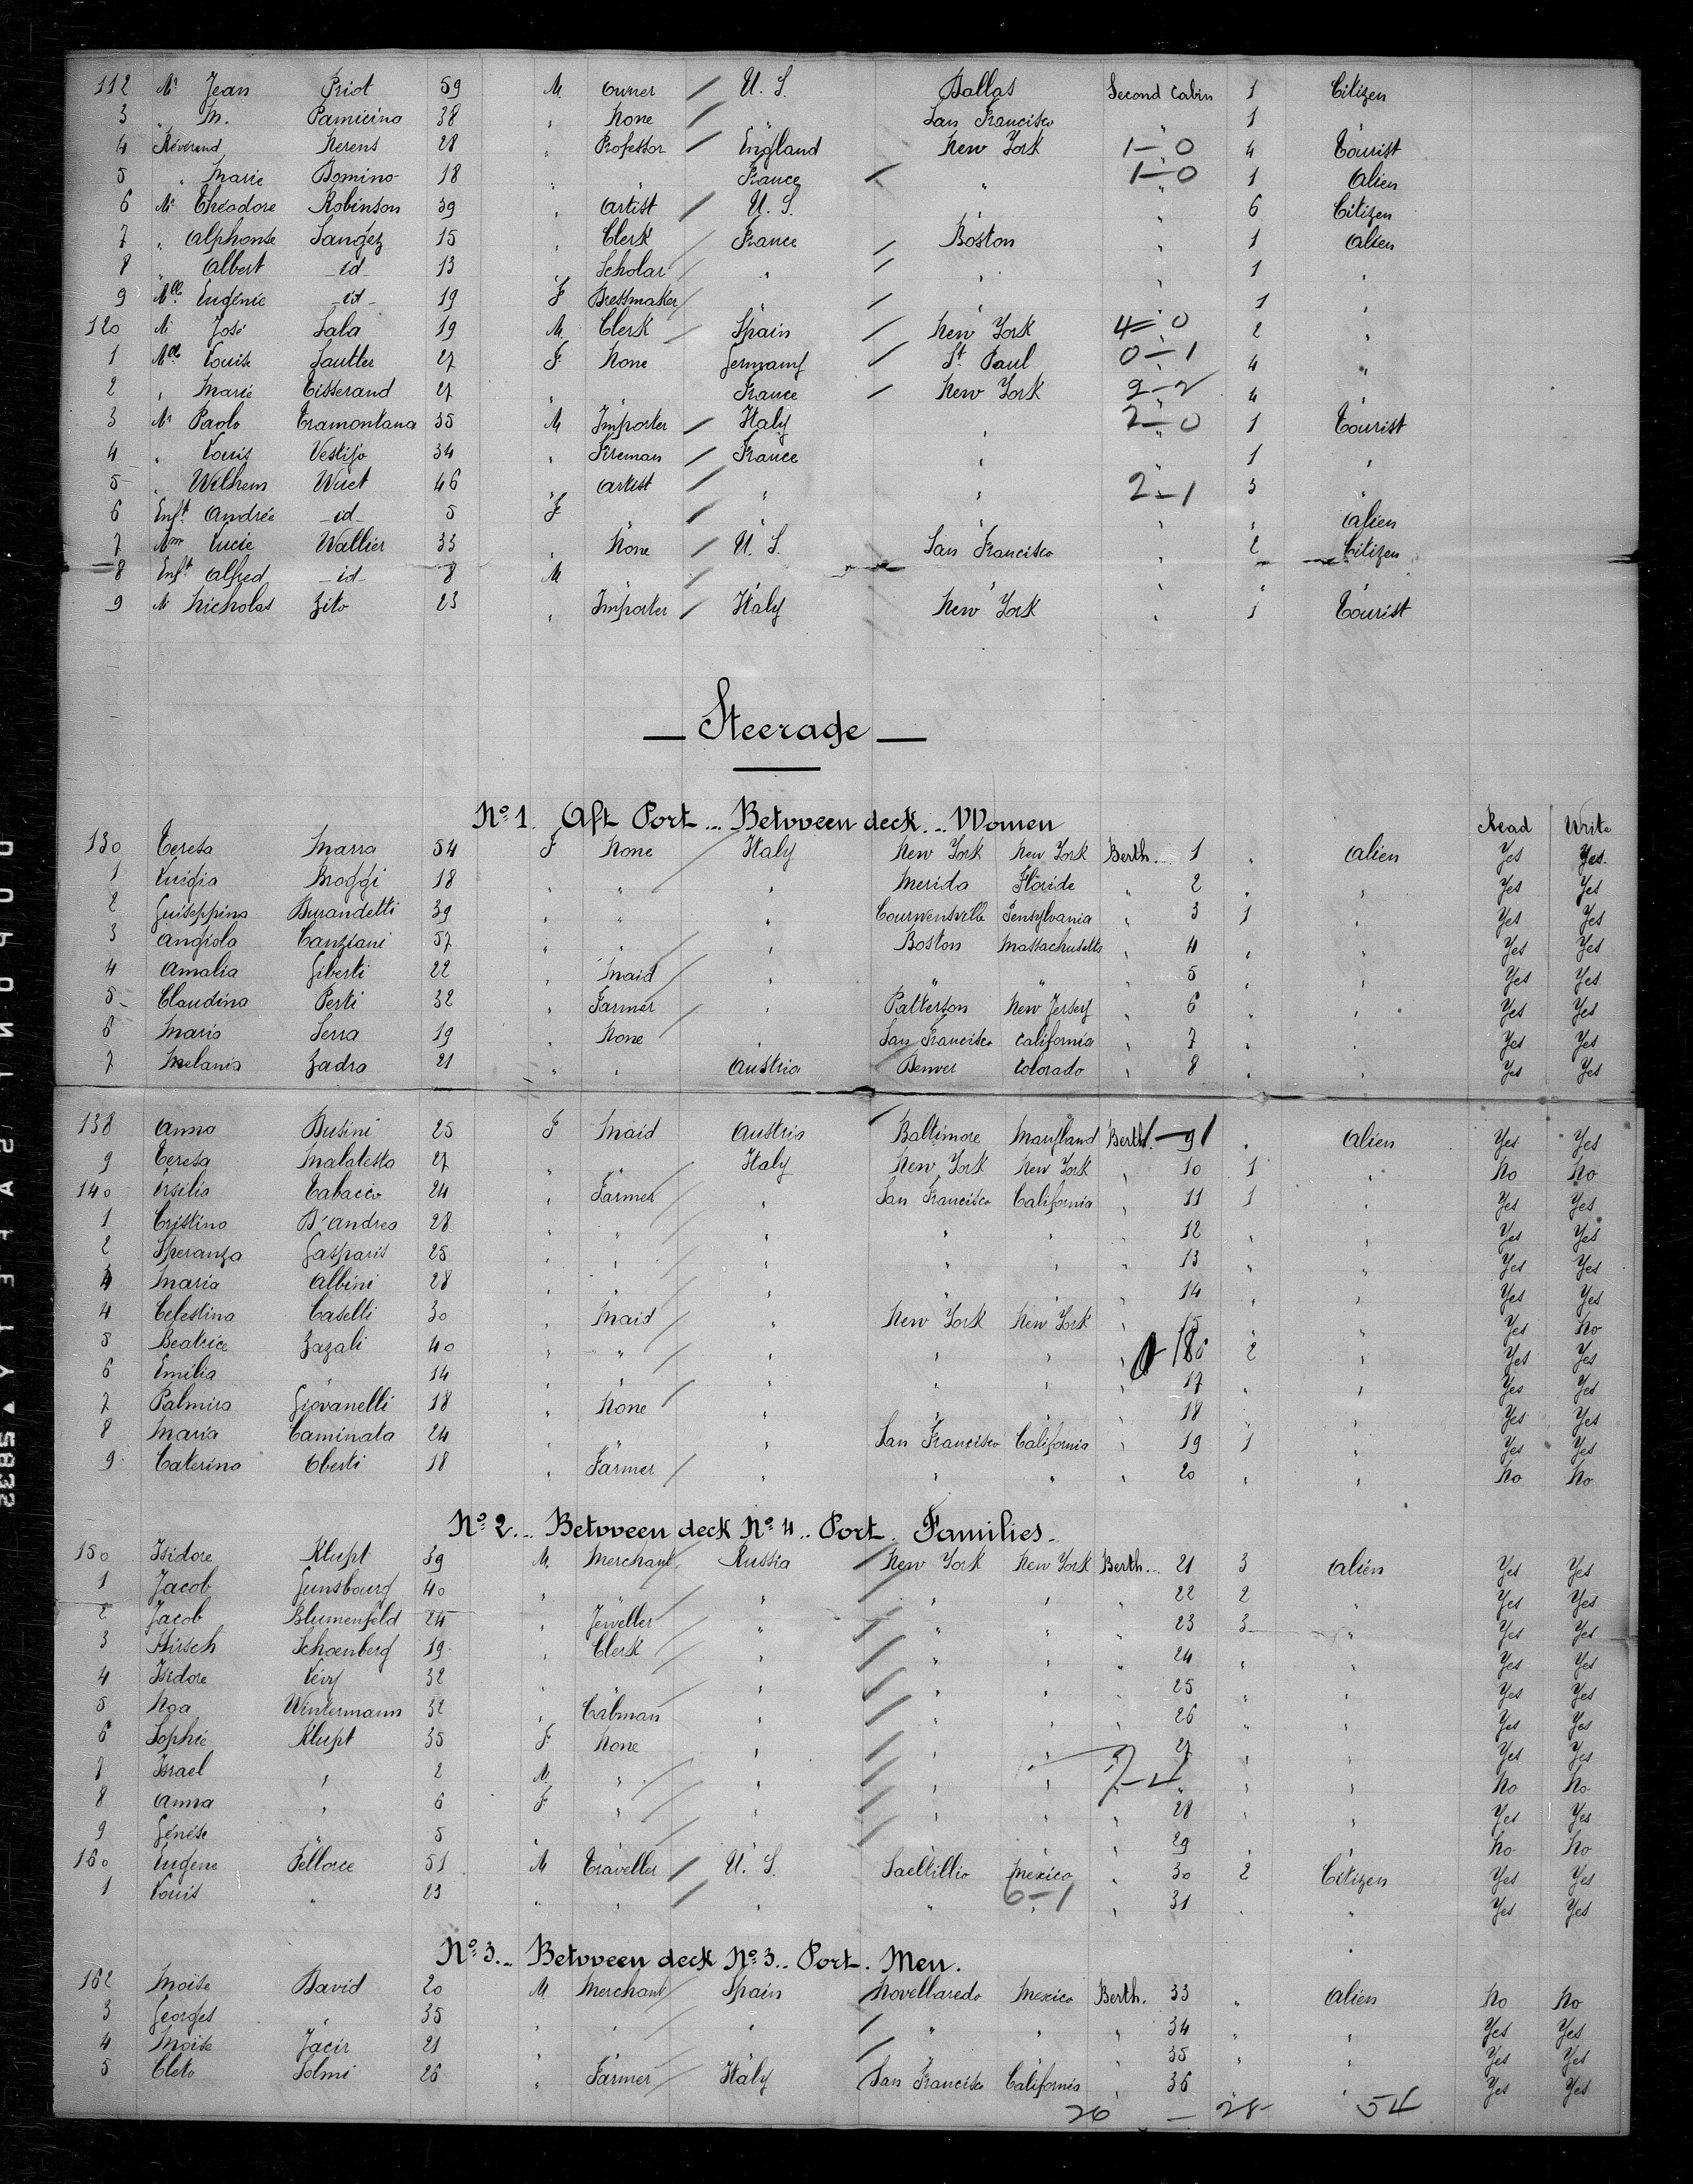 112 Mr Jean Priot 59 M. owner U.S. Dallas Second Cabin 1 Citizen
3 " M. Pamicino 38 " None " San Francisco " 1 "
4 Révérend Kerens 28 " Professor England New York 1-0 4 Tourist
5 " Marie Domino 18 " " France " 1-0 1 Alien
6 Mr Théodore Robinson 39 " Artist U.S. " " 6 Citizen
7 " Alphonse Sangez 15 " Clerk France Boston " 1 Alien
8 " Albert id 13 " Scholar " " " 1 "
9 Mlle Eugénie id 19 F Dressmaker " " " 1 "
120 M. José Sala 19 M. Clerk Spain New York 4=0 2 "
1 Mlle Louise Sautter 27 F None Germany St Paul 0-1 4 "
2 " Marie Tisserand 27 " " France New York 2-2 4 "
3 Mr Paolo Tramontana 35 M Importer Italy " 2-0 1 Tourist
4 " Louis Vestizo 34 " Fireman France " " 1 "
5 " Wilhem 46 " Artist " " 2-1 3 "
6 Enft Andrée id 5 F " " " " " Alien
7 Mme Lucie Wallier 33 " None U.S. San Francisco " 2 Citizen
8 Enft Alfred id 8 M " " " " " "
9 M. Nicholas Zito 23 " Importer Italy New York " 1 Tourist
— Steerage —
No 1. Aft Port... Betvveen deck... VVomen
Read Write
130 Teresa Marra 54 F None Italy New York New York Berth. 1 " Alien Yes Yes
1 Luigia Broggi 18 " " " Merida Floride " 2 " " Yes Yes
2 Guiseppina Burandetti 39 " " " Courwensville Pensylvania " 3 1 " Yes Yes
3 Angiola Canziani 57 " " " Boston Massachusetts " 4 " " Yes Yes
4 Amalia Giberti 22 " Maid " " " " 5 " " Yes Yes
5 Claudina Perti 32 " Farmer " Patterson New Jersey " 6 " " Yes Yes
6 Maria Serra 19 " None " San Francisco California " 7 " " Yes Yes
7 Melania Zadra 21 " " Austria Denver Colorado " 8 " " Yes Yes
138 Anna Busini 25 F Maid Austria Baltimore Maryland Berth. 9 " Alien Yes Yes
9 Teresa Malatesta 27 " " Italy New York New York " 10 1 " No No
140 Ersilia Tabacco 24 " Farmer " San Francisco California " 11 1 " Yes Yes
1 Cristina D'Andrea 28 " " " " " " 12 " " Yes Yes
2 Speranza Gasparis 25 " " " " " " 13 " " Yes Yes
3 Maria Albini 28 " " " " " " 14 " " Yes Yes
4 Celestina Caselli 30 " Maid " New York New York " 15 " " Yes No
5 Beatrice Zazali 40 " " " " " " 16 2 " Yes Yes
6 Emilia " 14 " " " " " " 17 " " Yes Yes
7 Palmira Giovanelli 18 " None " " " " 18 " " Yes Yes
8 Maria Caminata 24 " " " San Francisco California " 19 1 " Yes Yes
9 Caterina Oberti 18 " Farmer " " " " 20 " " No No
No 2... Betvveen deck No 4.. Port. Families.
150 Isidore Klupt 39 M. Merchant Russia New York New York Berth... 21 3 Alien Yes Yes
1 Jacob Gunsbourg 40 " " " " " " 22 2 " Yes Yes
2 Jacob Blumenfeld 24 " Jeweller " " " " 23 3 " Yes Yes
3 Hirsch Schoenberg 19 " Clerk " " " " 24 " " Yes Yes
4 Isidore Levy 32 " " " " " " 25 " " Yes Yes
5 Noa Wintermann 32 " Cabman " " " " 26 " " Yes Yes
6 Sophie Klupt 35 F None " " " " 27 " " Yes Yes
7 Israel " 2 M " " " " " " " " No No
8 Anna " 6 F " " " " " 28 " " Yes Yes
9 Génése " 5 " " " " " " 29 " " No No
160 Eugène Pellorce 51 M Traveller U.S. Saeltillio Mexico " 30 2 Citizen Yes Yes
1 Louis " 23 " " " " 6-1 " 31 " " Yes Yes
No 3... Betvveen deck No 3.. Port. Men.
162 Moïse David 20 M. Merchant Spain Novellaredo Mexico Berth. 33 " Alien No No
3 Georges " 35 " " " " " " 34 " " Yes Yes
4 Moïse Jacir 21 " " " " " " 35 " " Yes Yes
5 Cleto Solmi 26 " Farmer Italy San Francisco California " 36 " " Yes Yes
26 — 28 54